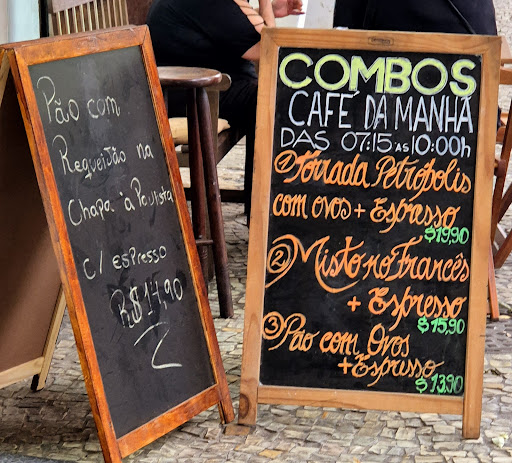 Pão com
Requeijão na
Chapa à Paulista
c/ espresso
R$14,90
COMBOS
CAFÉ DA MANHÃ
DAS 07:15 às 10:00h
① Torrada Petrópolis
com ovos + Espresso
$19,90
② Misto no Francês
+ Espresso
$15,90
③ Pão com Ovos
+ Espresso
$13,90